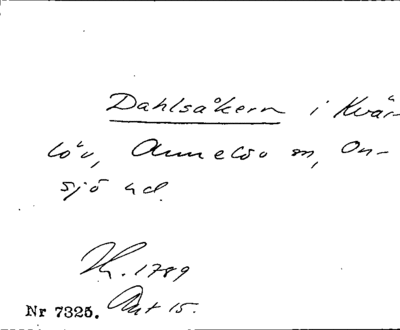 Dahlsåkern i Kvär-
löv, Annelöv sn, On-
sjö hd.
1789
Nr 7325. Akt 15.